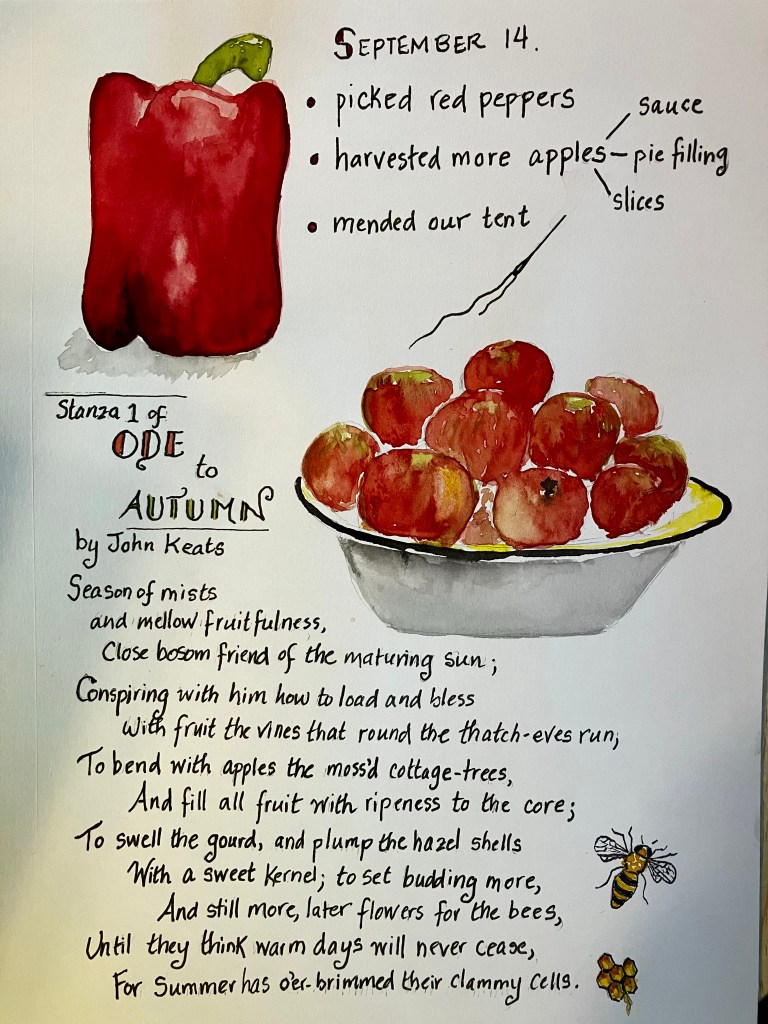 SEPTEMBER 14.
• picked red peppers
• harvested more apples – pie filling
sauce
slices
• mended our tent
Stanza 1 of
ODE
to
AUTUMN
by John Keats
Season of mists
and mellow fruitfulness,
Close bosom friend of the maturing sun;
Conspiring with him how to load and bless
With fruit the vines that round the thatch-eves run;
To bend with apples the moss'd cottage-trees,
And fill all fruit with ripeness to the core;
To swell the gourd, and plump the hazel shells
With a sweet kernel; to set budding more,
And still more, later flowers for the bees,
Until they think warm days will never cease,
For Summer has o'er-brimmed their clammy cells.